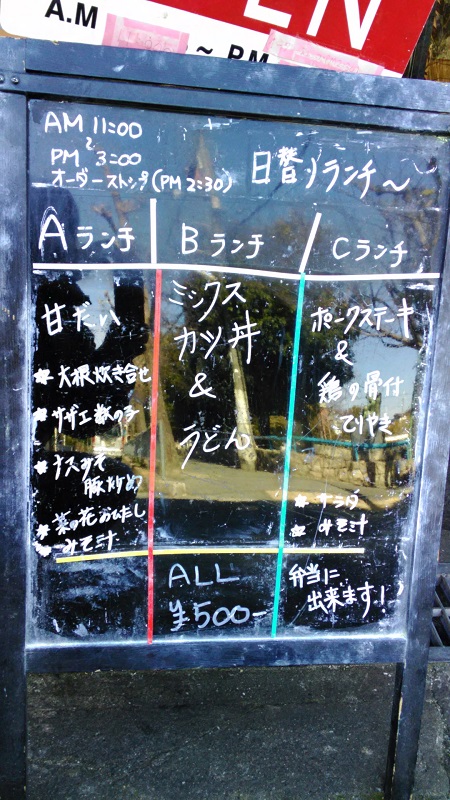 EN
A.M
~ P.M
AM 11:00
~
PM 3:00
オーダーストップ(PM 2:30)
日替りランチ～
Aランチ
甘だい
* 大根炊き合せ
* サザエ数の子
* ナスみそ
豚炒め
* 菜の花おひたし
* みそ汁
Bランチ
ミックス
カツ丼
&
うどん
Cランチ
ポークステーキ
&
鶏の骨付
てりやき
* サラダ
* みそ汁
ALL
¥500-
弁当に
出来ます!